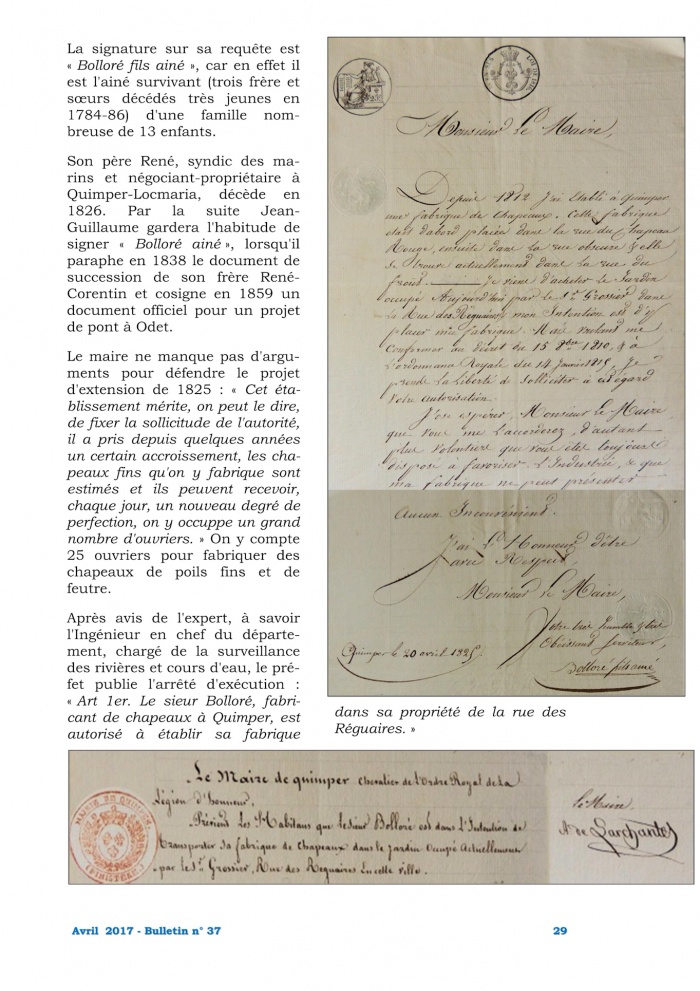 La signature sur sa requête est
« Bolloré fils ainé », car en effet il
est l'ainé survivant (trois frère et
sœurs décédés très jeunes en
1784-86) d'une famille nom-
breuse de 13 enfants.
Son père René, syndic des ma-
rins et négociant-propriétaire à
Quimper-Locmaria, décède en
1826. Par la suite Jean-
Guillaume gardera l'habitude de
signer « Bolloré ainé », lorsqu'il
paraphe en 1838 le document de
succession de son frère René-
Corentin et cosigne en 1859 un
document officiel pour un projet
de pont à Odet.
Le maire ne manque pas d'argu-
ments pour défendre le projet
d'extension de 1825 : « Cet éta-
blissement mérite, on peut le dire,
de fixer la sollicitude de l'autorité,
il a pris depuis quelques années
un certain accroissement, les cha-
peaux fins qu'on y fabrique sont
estimés et ils peuvent recevoir,
chaque jour, un nouveau degré de
perfection, on y occuppe un grand
nombre d'ouvriers. » On y compte
25 ouvriers pour fabriquer des
chapeaux de poils fins et de
feutre.
Après avis de l'expert, à savoir
l'Ingénieur en chef du départe-
ment, chargé de la surveillance
des rivières et cours d'eau, le pré-
fet publie l'arrêté d'exécution :
« Art 1er. Le sieur Bolloré, fabri-
cant de chapeaux à Quimper, est
autorisé à établir sa fabrique
Monsieur le Maire,
Depuis 1812 J'ai Etabli à Quimper
une fabrique de Chapeaux. Cette fabrique
etait d'abord placée dans la rue du Chapeau
Rouge, ensuite dans la rue obscure & elle
se trouve actuellement dans la rue du
froid. Je viens d'acheter le Jardin
occupé Aujourd'hui par le Sr. Grossier dans
la Rue des Réguaires, mon Intention est d'y
placer ma fabrique. Mais voulant me
Conformer au décret du 15 8bre 1810, & à
L'ordonnance Royale du 14 Janvier 1815, Je
prends la Liberté de Solliciter à cet égard
votre autorisation.
J'ose espérer, Monsieur le Maire
que vous me l'accorderez, d'autant
plus volontiers que vous êtes toujours
dispose a favoriser L'Industrie, & que
ma fabrique ne peut présenter
Aucun Inconvénient.
J'ai l'Honneur d'être
avec Respect,
Monsieur le Maire,
Votre très humble & très
Obéissant Serviteur,
Quimper le 20 avril 1825.
Bolloré fils ainé
dans sa propriété de la rue des
Réguaires. »
MAIRIE DE QUIMPER
(FINISTERE)
Le Maire de quimper Chevalier de L'Ordre Royal de La
Légion d'honneur,
Prévient Les Habitans que Le Sieur Bolloré est dans L'Intention de
Transporter sa fabrique de Chapeaux dans le Jardin Occupé Actuellement
par le Sr. Grossier, Rue des Reguaires En cette Ville.
le Maire
Avril 2017 - Bulletin n° 37
29